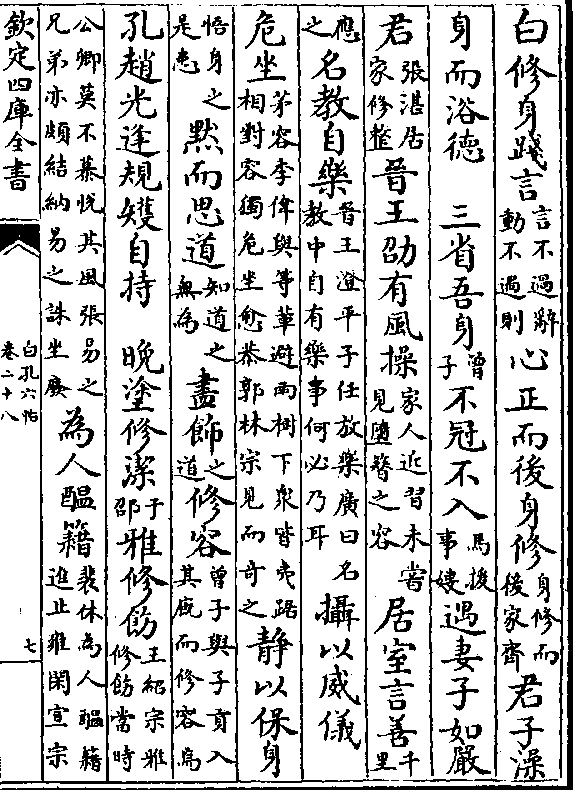 白修身踐言言不過辭動不過則心正而後身修身修而後家齊君子澡
身而浴德　三省吾身曾子不冠不入馬援事嫂遇妻子如嚴
君張湛居家修整晉王劭有風操家人近習未嘗見墮替之容居室言善千里
應之名教自樂晉王澄平子任放樂廣曰名教中自有樂事何必乃耳攝以威儀
危坐茅容李偉與等輩避雨樹下衆皆夷踞相對容獨危坐愈恭郭林宗見而奇之靜以保身
悟身之是患黙而思道知道之無為盡飾之道修容曾子與子貢入其廐而修容焉
孔趙光逢規矱自持　晚塗修潔于邵雅修飭王紹宗雅修飭當時
公卿莫不慕悦其風張易之兄弟亦頗結納易之誅坐廢為人醖籍裴休為人醖籍進止雍閑宣宗
欽定四庫全書
白孔六帖
卷二十八
七